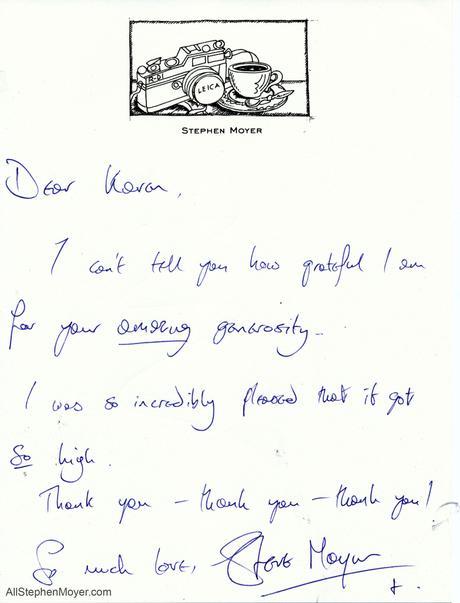 LEICA
STEPHEN MOYER
Dear Karen,
I can't tell you how grateful I am
for your amazing generosity –
I was so incredibly pleased that it got
so high.
Thank you – thank you – thank you!
So much love, Steve Moyer
x.
AllStephenMoyer.com